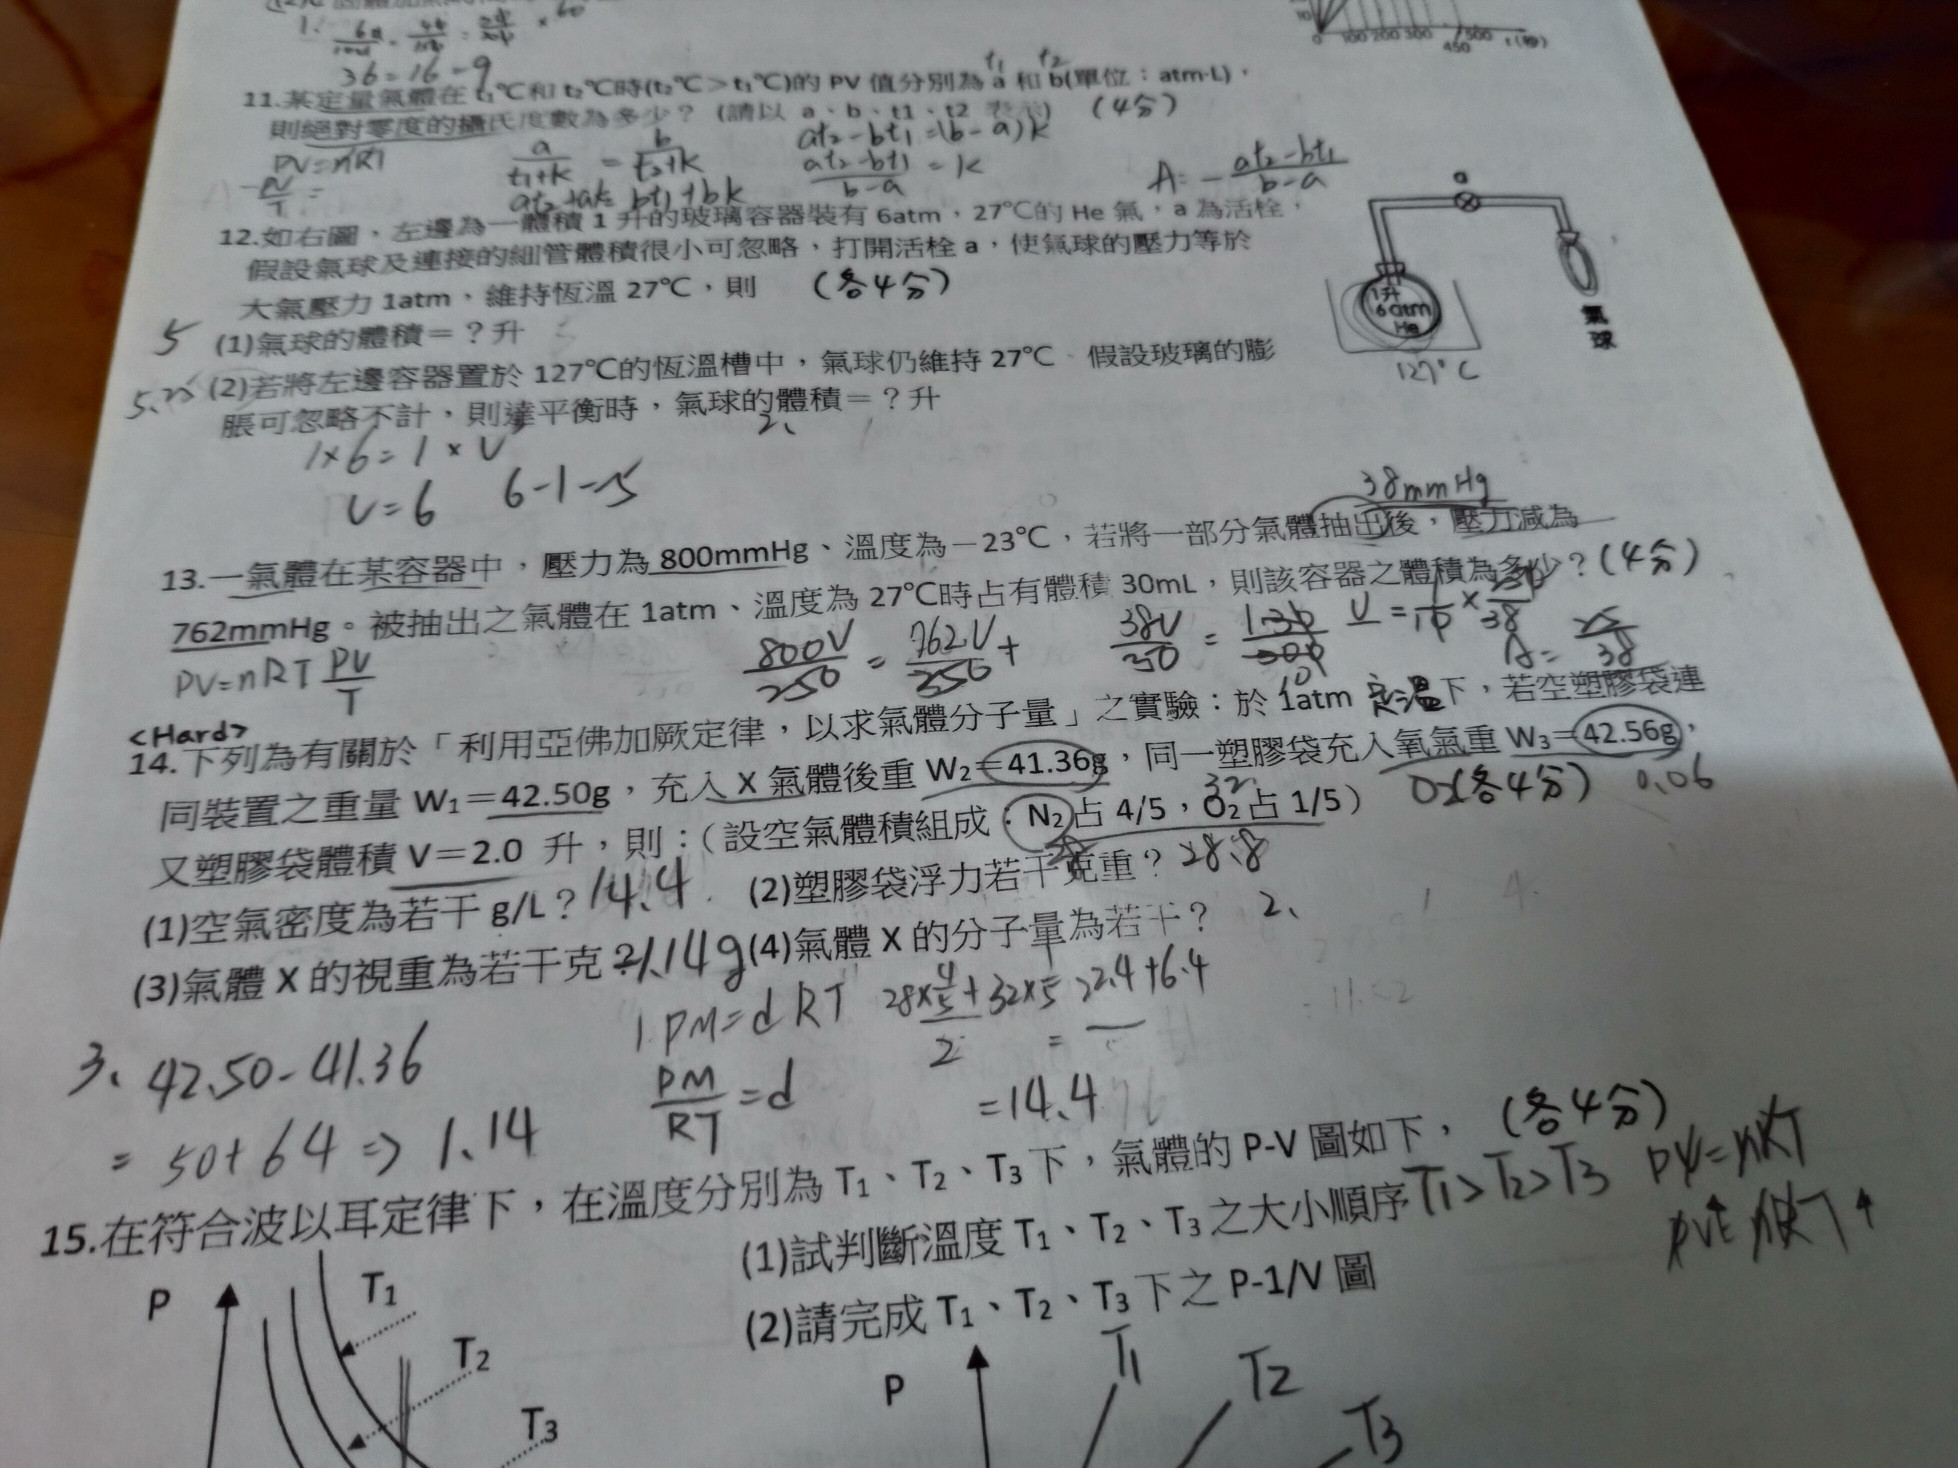 36=16-9
0 100 200 300 450 500 t(秒)
t₁ t₂
11.某定量氣體在 t₁℃和 t₂℃時(t₂℃>t₁℃)的 PV 值分別為 a 和 b(單位：atm·L)，
則絕對零度的攝氏度數為多少？(請以 a、b、t1、t2 表示) (4分)
PV=nRT
PV/T =
a/(t₁+k) = b/(t₂+k)
at₂+ak=bt₁+bk
at₂-bt₁=(b-a)k
(at₂-bt₁)/(b-a) = k
A=-(at₂-bt₁)/(b-a)
12.如右圖，左邊為一體積 1 升的玻璃容器裝有 6atm，27℃的 He 氣，a 為活栓，
假設氣球及連接的細管體積很小可忽略，打開活栓 a，使氣球的壓力等於
大氣壓力 1atm、維持恆溫 27℃，則 (各4分)
5 (1)氣球的體積＝？升
5.25 (2)若將左邊容器置於 127℃的恆溫槽中，氣球仍維持 27℃ 假設玻璃的膨
脹可忽略不計，則達平衡時，氣球的體積＝？升
a
1升
6atm
He
氣球
127°C
2、
1×6=1×V
V=6 6-1=5
38mmHg
13.一氣體在某容器中，壓力為 800mmHg、溫度為－23℃，若將一部分氣體抽出後，壓力減為
762mmHg。被抽出之氣體在 1atm、溫度為 27℃時占有體積 30mL，則該容器之體積為多少？(4分)
PV=nRT PV/T
800V/250 = 762V/250 +
<Hard>
14.下列為有關於「利用亞佛加厥定律，以求氣體分子量」之實驗：於 1atm 定溫下，若空塑膠袋連
同裝置之重量 W₁＝42.50g，充入 X 氣體後重 W₂＝41.36g，同一塑膠袋充入氧氣重 W₃＝42.56g，
又塑膠袋體積 V＝2.0 升，則：(設空氣體積組成：N₂占 4/5，O₂占 1/5) (各4分) 0.06
32
28.8
(1)空氣密度為若干 g/L？14.4 (2)塑膠袋浮力若干克重？
(3)氣體 X 的視重為若干克？1.14g (4)氣體 X 的分子量為若干？
2、
3、42.50-41.36
= 50+64 => 1.14
1.PM=dRT
PM/RT=d
=14.4
15.在符合波以耳定律下，在溫度分別為 T₁、T₂、T₃下，氣體的 P-V 圖如下， (各4分)
(1)試判斷溫度 T₁、T₂、T₃之大小順序 T₁>T₂>T₃
PV=nRT
(2)請完成 T₁、T₂、T₃下之 P-1/V 圖
P T₁
T₂
T₃
P T₁
T₂
T₃